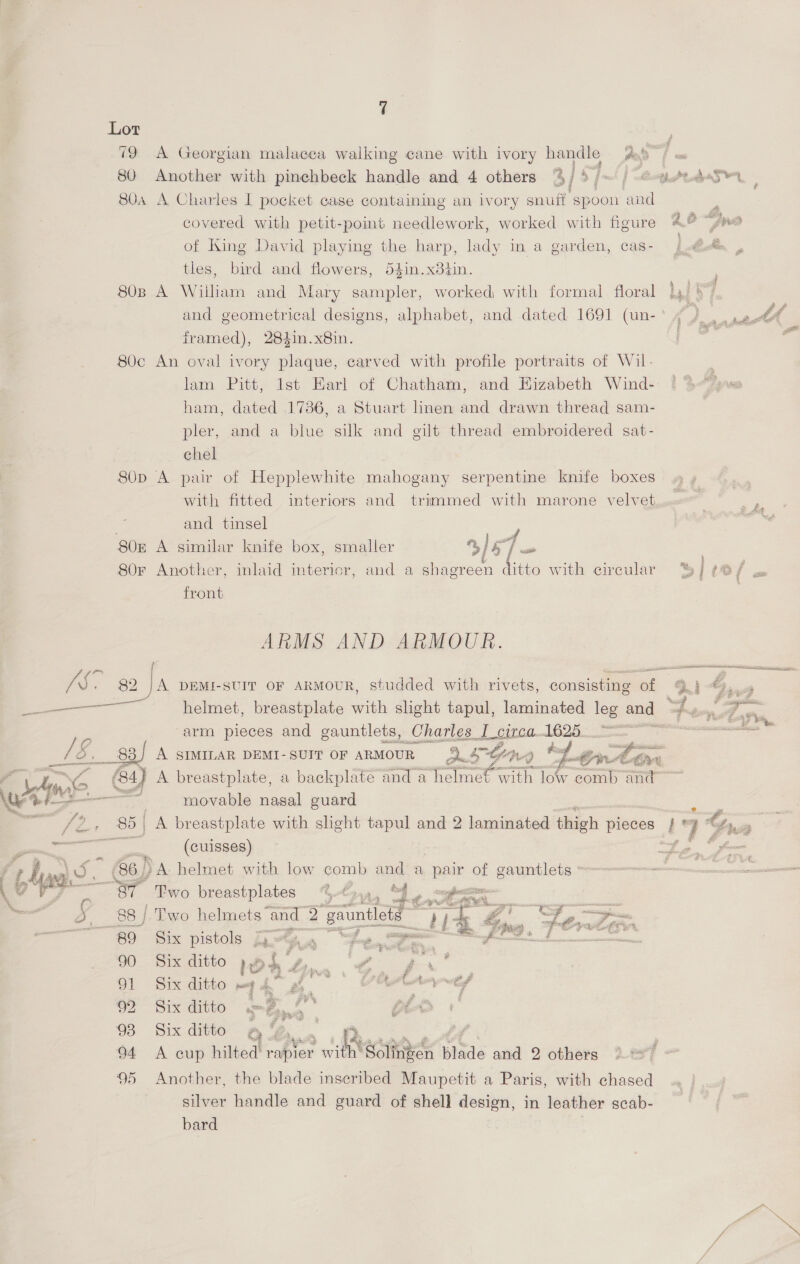 7
Lot
79 A Georgian malacca walking cane with ivory handle
80 Another with pinchbeck handle and 4 others 3/5/-
80A A Charles I pocket case containing an ivory snuff spoon and
covered with petit-point needlework, worked with figure
of King David playing the harp, lady in a garden, cas-
tles, bird and flowers, 5½in.x3½in.
80B A William and Mary sampler, worked with formal floral
and geometrical designs, alphabet, and dated 1691 (un-
framed), 28½in.x8in.
80C An oval ivory plaque, carved with profile portraits of Wil-
lam Pitt, 1st Earl of Chatham, and Eizabeth Wind-
ham, dated 1736, a Stuart linen and drawn thread sam-
pler, and a blue silk and gilt thread embroidered sat-
chel
80D A pair of Hepplewhite mahogany serpentine knife boxes
with fitted interiors and trimmed with marone velvet
and tinsel
80E A similar knife box, smaller 3/5/-
80F Another, inlaid interior, and a shagreen ditto with circular 3/10/-
front
ARMS AND ARMOUR.
15. 82 A DEMI-SUIT OF ARMOUR, studded with rivets, consisting of
helmet, breastplate with slight tapul, laminated leg and
arm pieces and gauntlets, Charles I circa 1625
18. 83 A SIMILAR DEMI-SUIT OF ARMOUR 25 Gns Fenton
84 A breastplate, a backplate and a helmet with low comb and
movable nasal guard
12. 85 A breastplate with slight tapul and 2 laminated thigh pieces 17 Gns
(cuisses) Fenton
86 A helmet with low comb and a pair of gauntlets
87 Two breastplates Fenton
88 Two helmets and 2 gauntlets Gns. Fenton
89 Six pistols
90 Six ditto
91 Six ditto
92 Six ditto
93 Six ditto
94 A cup hilted rapier with Solingen blade and 2 others
95 Another, the blade inscribed Maupetit a Paris, with chased
silver handle and guard of shell design, in leather scab-
bard